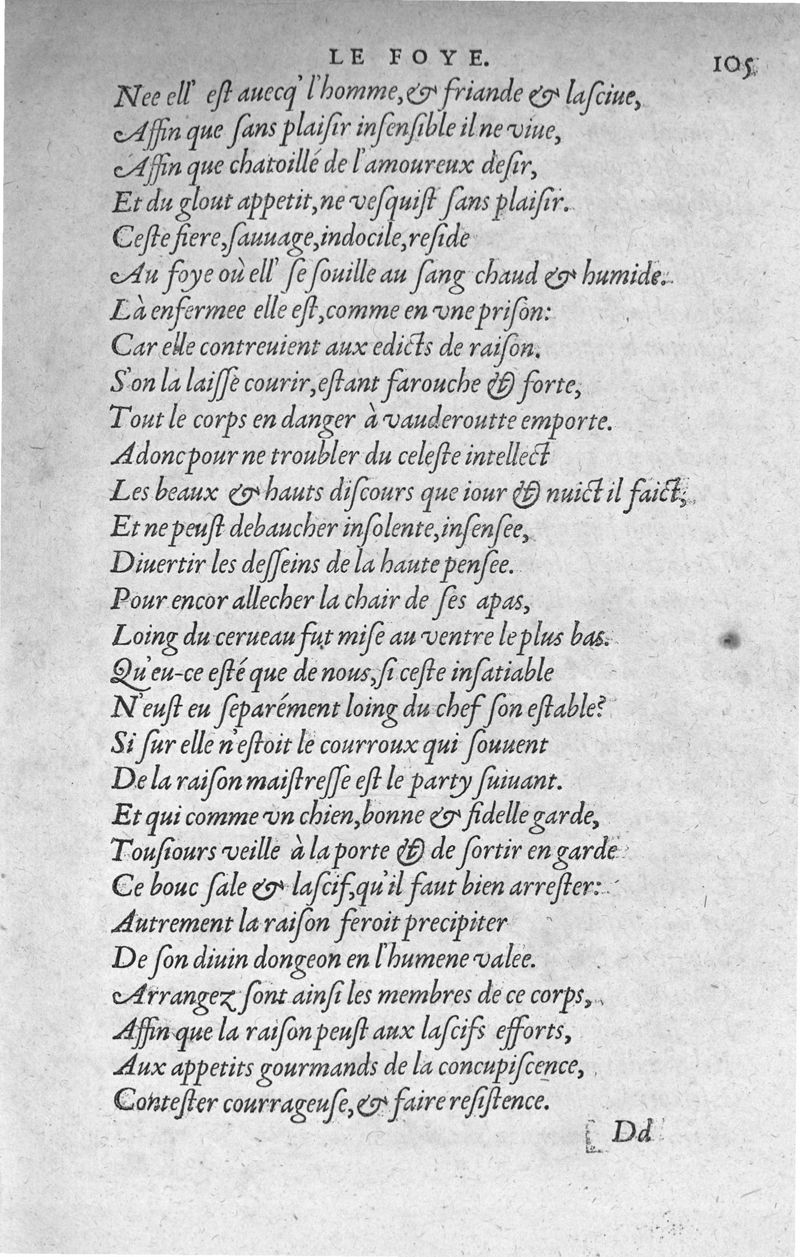 LE FOYE. 105
Nee ell' est auecq' l'homme, & friande & lasciue,
Affin que sans plaisir insensible il ne viue,
Affin que chatoillé de l'amoureux desir,
Et du glout appetit, ne vesquist sans plaisir.
Ceste fiere, sauuage, indocile, reside
Au foye où ell' se souille au sang chaud & humide.
Là enfermee elle est, comme en vne prison:
Car elle contreuient aux edicts de raison.
S'on la laisse courir, estant farouche & forte,
Tout le corps en danger à vauderoutte emporte.
Adonc pour ne troubler du celeste intellect
Les beaux & hauts discours que iour & nuict il faict,
Et ne peust debaucher insolente, insensee,
Diuertir les desseins de la haute pensee.
Pour encor allecher la chair de ses apas,
Loing du cerueau fut mise au ventre le plus bas.
Qu'eu-ce esté que de nous, si ceste insatiable
N'eust eu separément loing du chef son estable?
Si sur elle n'estoit le courroux qui souuent
De la raison maistresse est le party suiuant.
Et qui comme vn chien, bonne & fidelle garde,
Tousiours veille à la porte & de sortir engarde
Ce bouc sale & lascif, qu'il faut bien arrester:
Autrement la raison feroit precipiter
De son diuin dongeon en l'humene valee.
Arrangez sont ainsi les membres de ce corps,
Affin que la raison peust aux lascifs efforts,
Aux appetits gourmands de la concupiscence,
Contester courrageuse, & faire resistence.
Dd